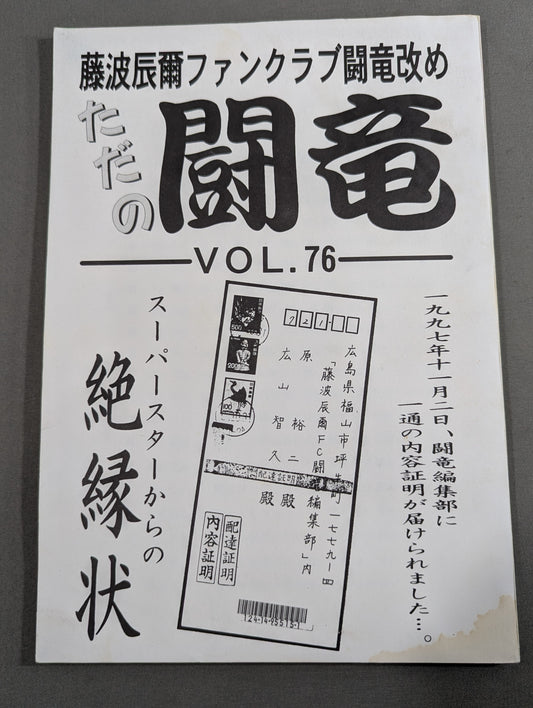 藤波辰爾ファンクラブ闘竜改め
ただの
闘竜
VOL.76
一九九七年十一月二日、闘竜編集部に
一通の内容証明が届けられました…。
スーパースターからの
絶縁状
500
200
100
721
広島県福山市坪生町一七七九-四
「藤波辰爾FC闘竜編集部」内
原裕二殿
広山智久殿
配達証明
配達証明
内容証明
124-14-95515-1